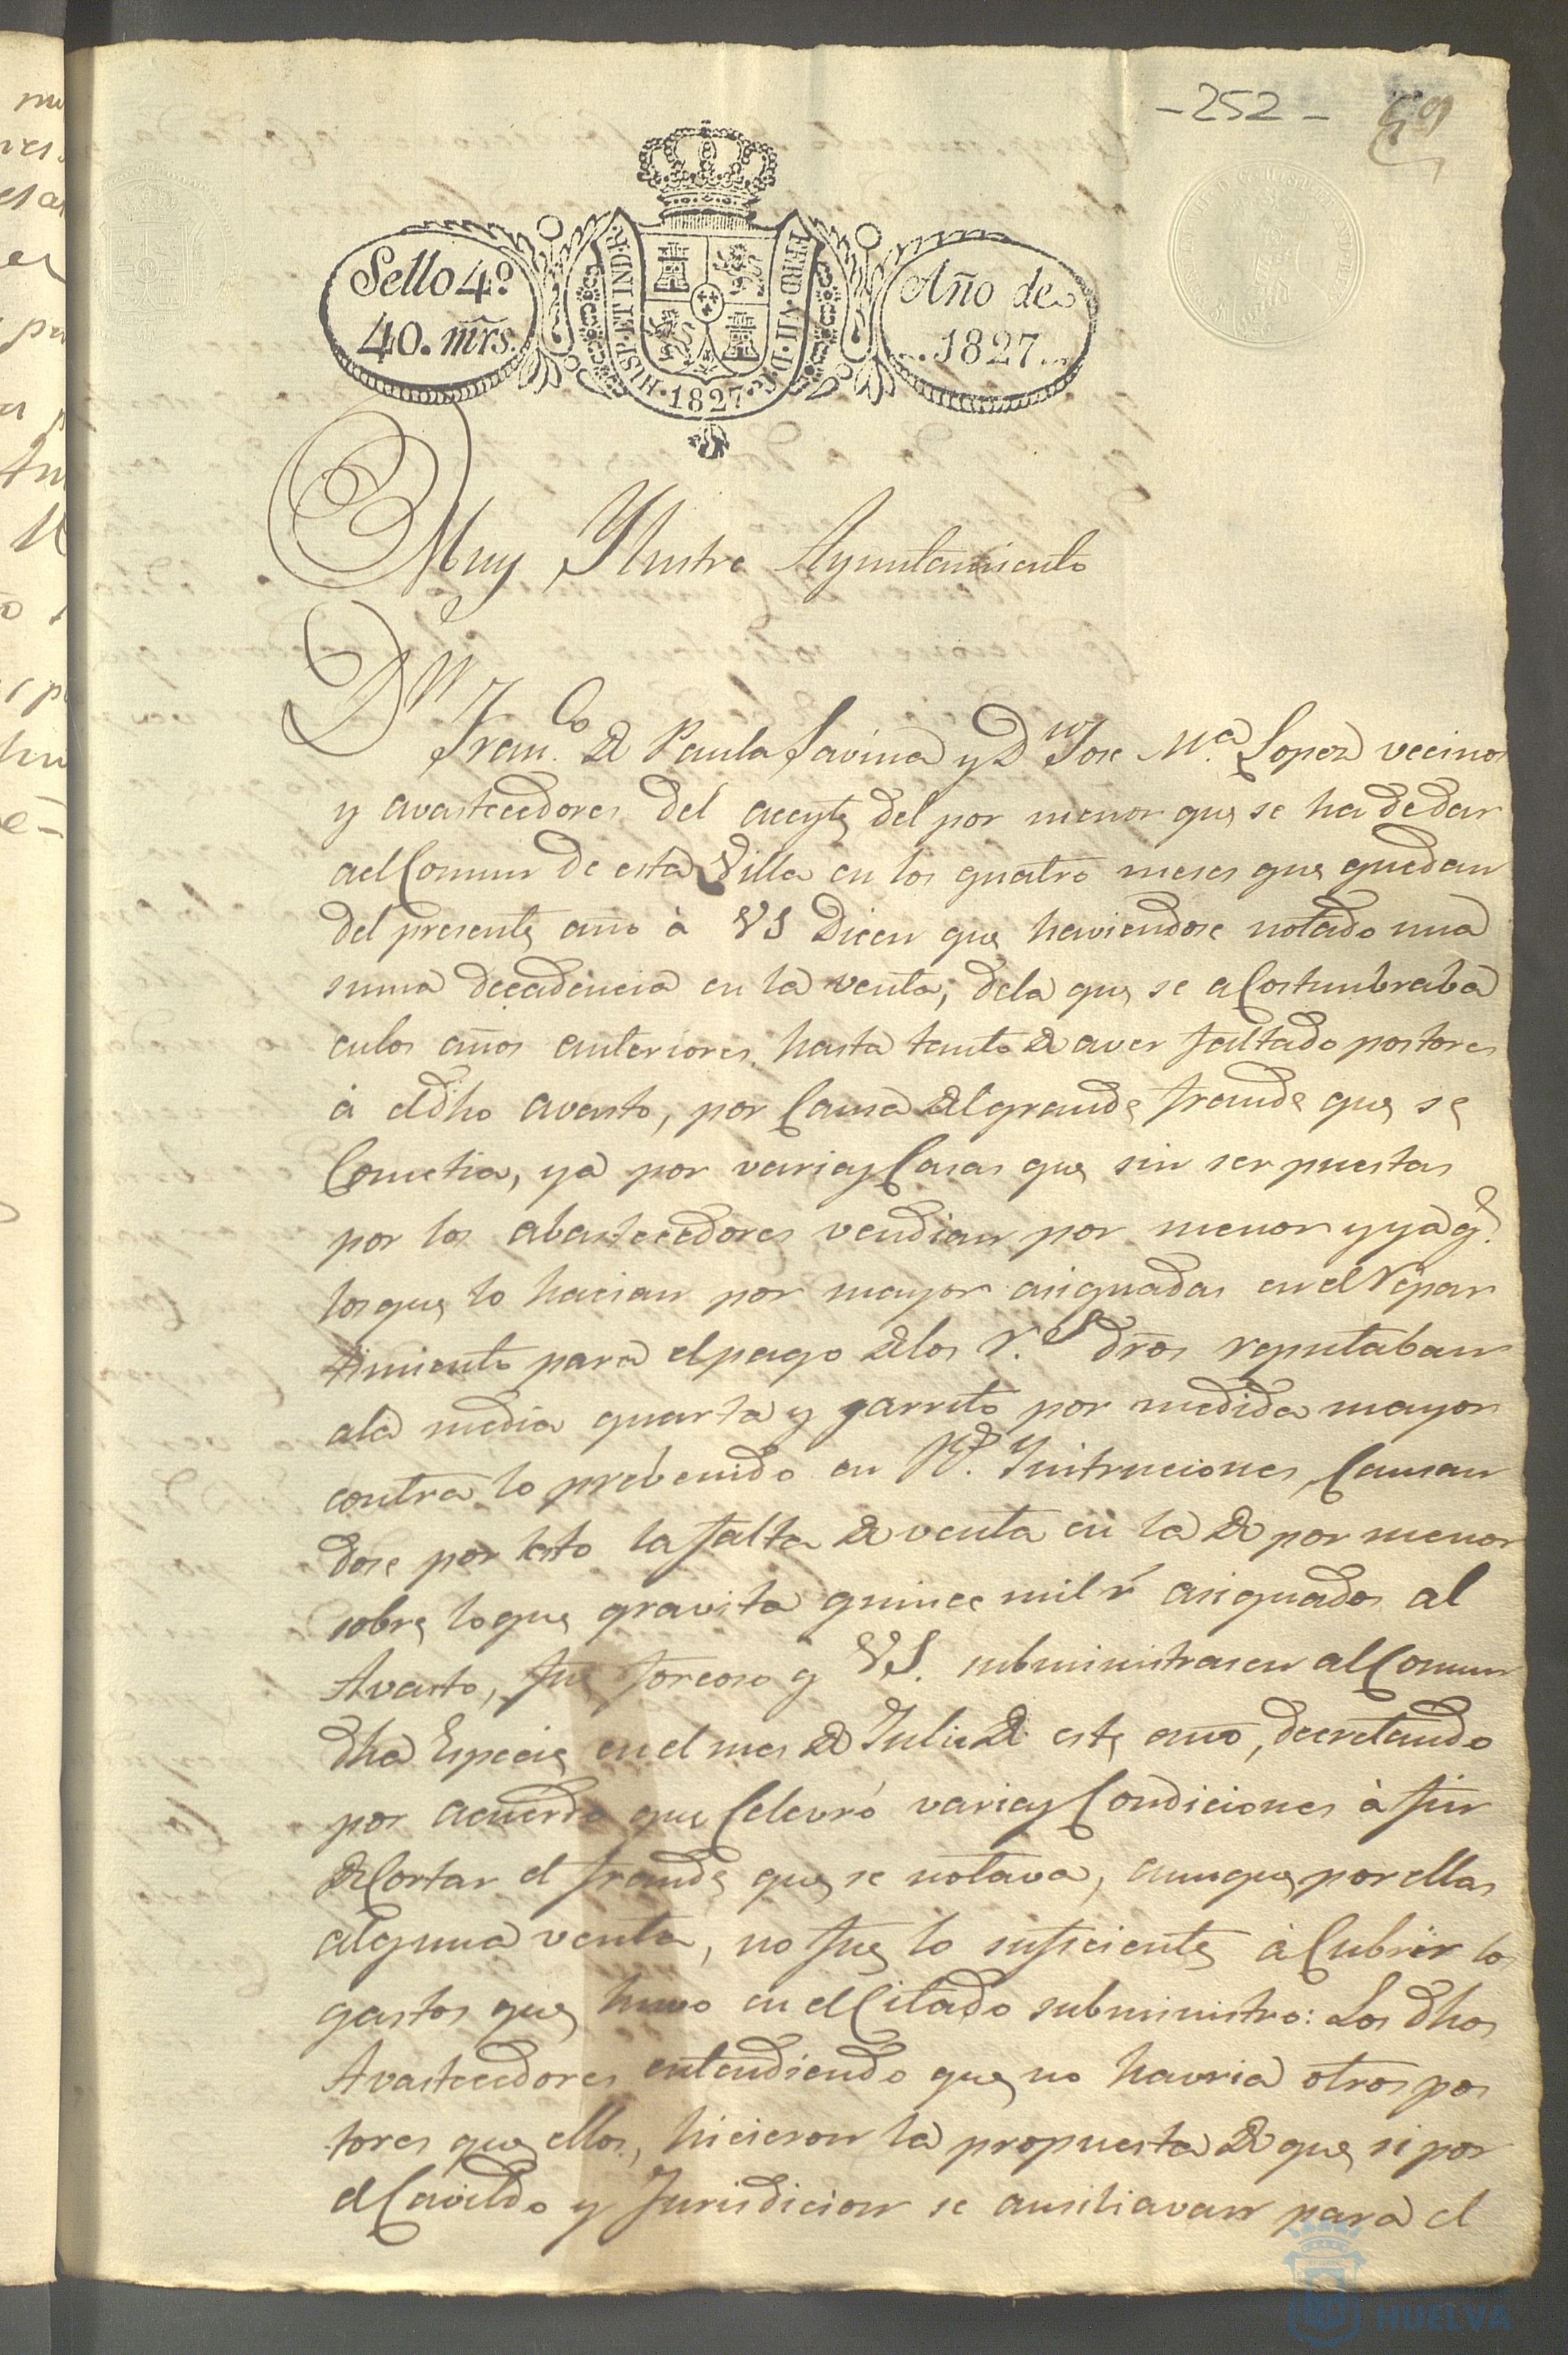 -252-
Sello 4.º
40. mrs.
HISP. ET IND. R.
FERD. VII. D. G.
1827
Año de
1827
Muy Ylustre Ayuntamiento
Dn
Fran.co de Paula Savina y Dn Jose Ma. Lopez vecinos
y avastecedores del aceyte del por menor que se ha de dar
ael Comun de esta Villa en los quatro meses que quedan
del presente año à VS Dicen que haviendose notado una
suma decadencia en la venta, dela que se aCostumbraba
enlos años anteriores, hasta tanto de aver faltado postores
à eldho avasto, por Causa del grande fraude que se
Cometia, ya por varias Casas que sin ser puestas
por los abastecedores vendian por menor y ya q.e
los que lo hacian por mayor asignadas en el repar
timiento para el pago de los r.s dros reputaban
ala media quarta y jarrito por medida mayor
contra lo prebenido en Rs. Ynstruciones, Causan
dose por esto la falta de venta en la de por menor
sobre loque gravita quince mil r.s asignados al
Avasto, fue forcoso q VS. subministrasen al Comun
dha Especie en el mes de Julio de este año, decretando
por acuerdo que Celevró varias Condiciones à fin
de Cortar el fraude que se notava, aunque por ellas
alguna venta, no fue lo suficiente à Cubrir los
gastos que huvo en el Citado subministro: Los dhos
Avastecedores entendiendo que no havria otros pos
tores que ellos, hicieron la propuesta de que si por
el Cavildo y Jurisdicion se ausiliavan para el
HUELVA